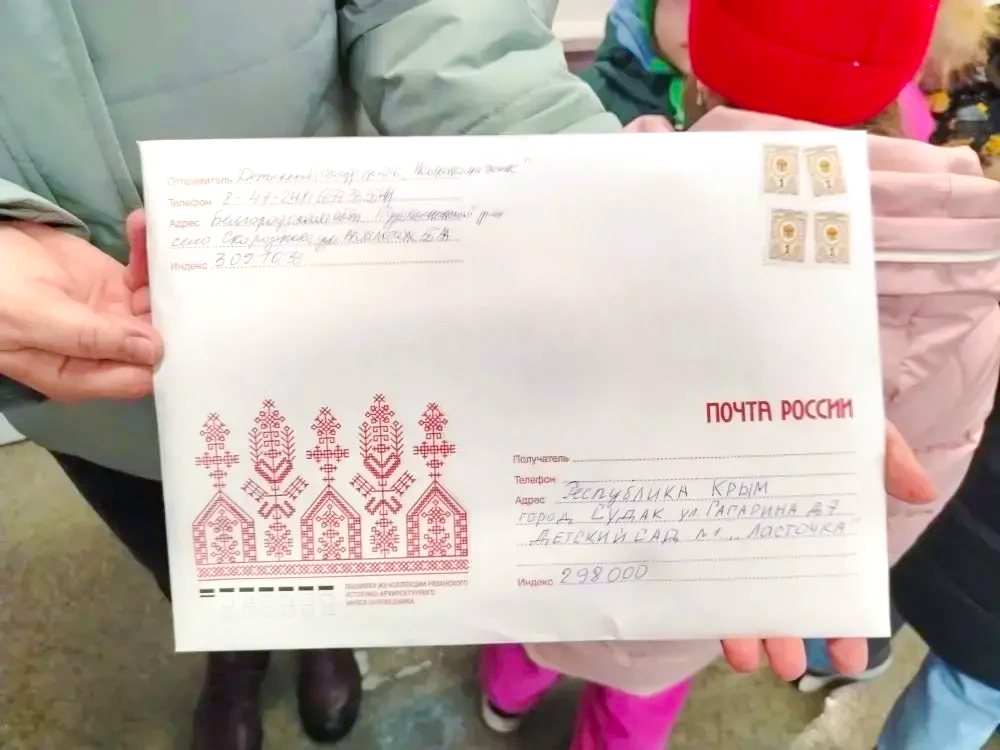 Отправитель Детский
Телефон 8-47-241
Адрес Белгородская обл. р-он
село Скородное ул.
Индекс 309163
1 1
1 1
ПОЧТА РОССИИ
Получатель
Телефон
Адрес Республика Крым
город Судак ул Гагарина д.7
Детский сад №1 „Ласточка"
Индекс 298000
ВЫШИВКА ИЗ КОЛЛЕКЦИИ РЯЗАНСКОГО
ИСТОРИКО-АРХИТЕКТУРНОГО
МУЗЕЯ-ЗАПОВЕДНИКА